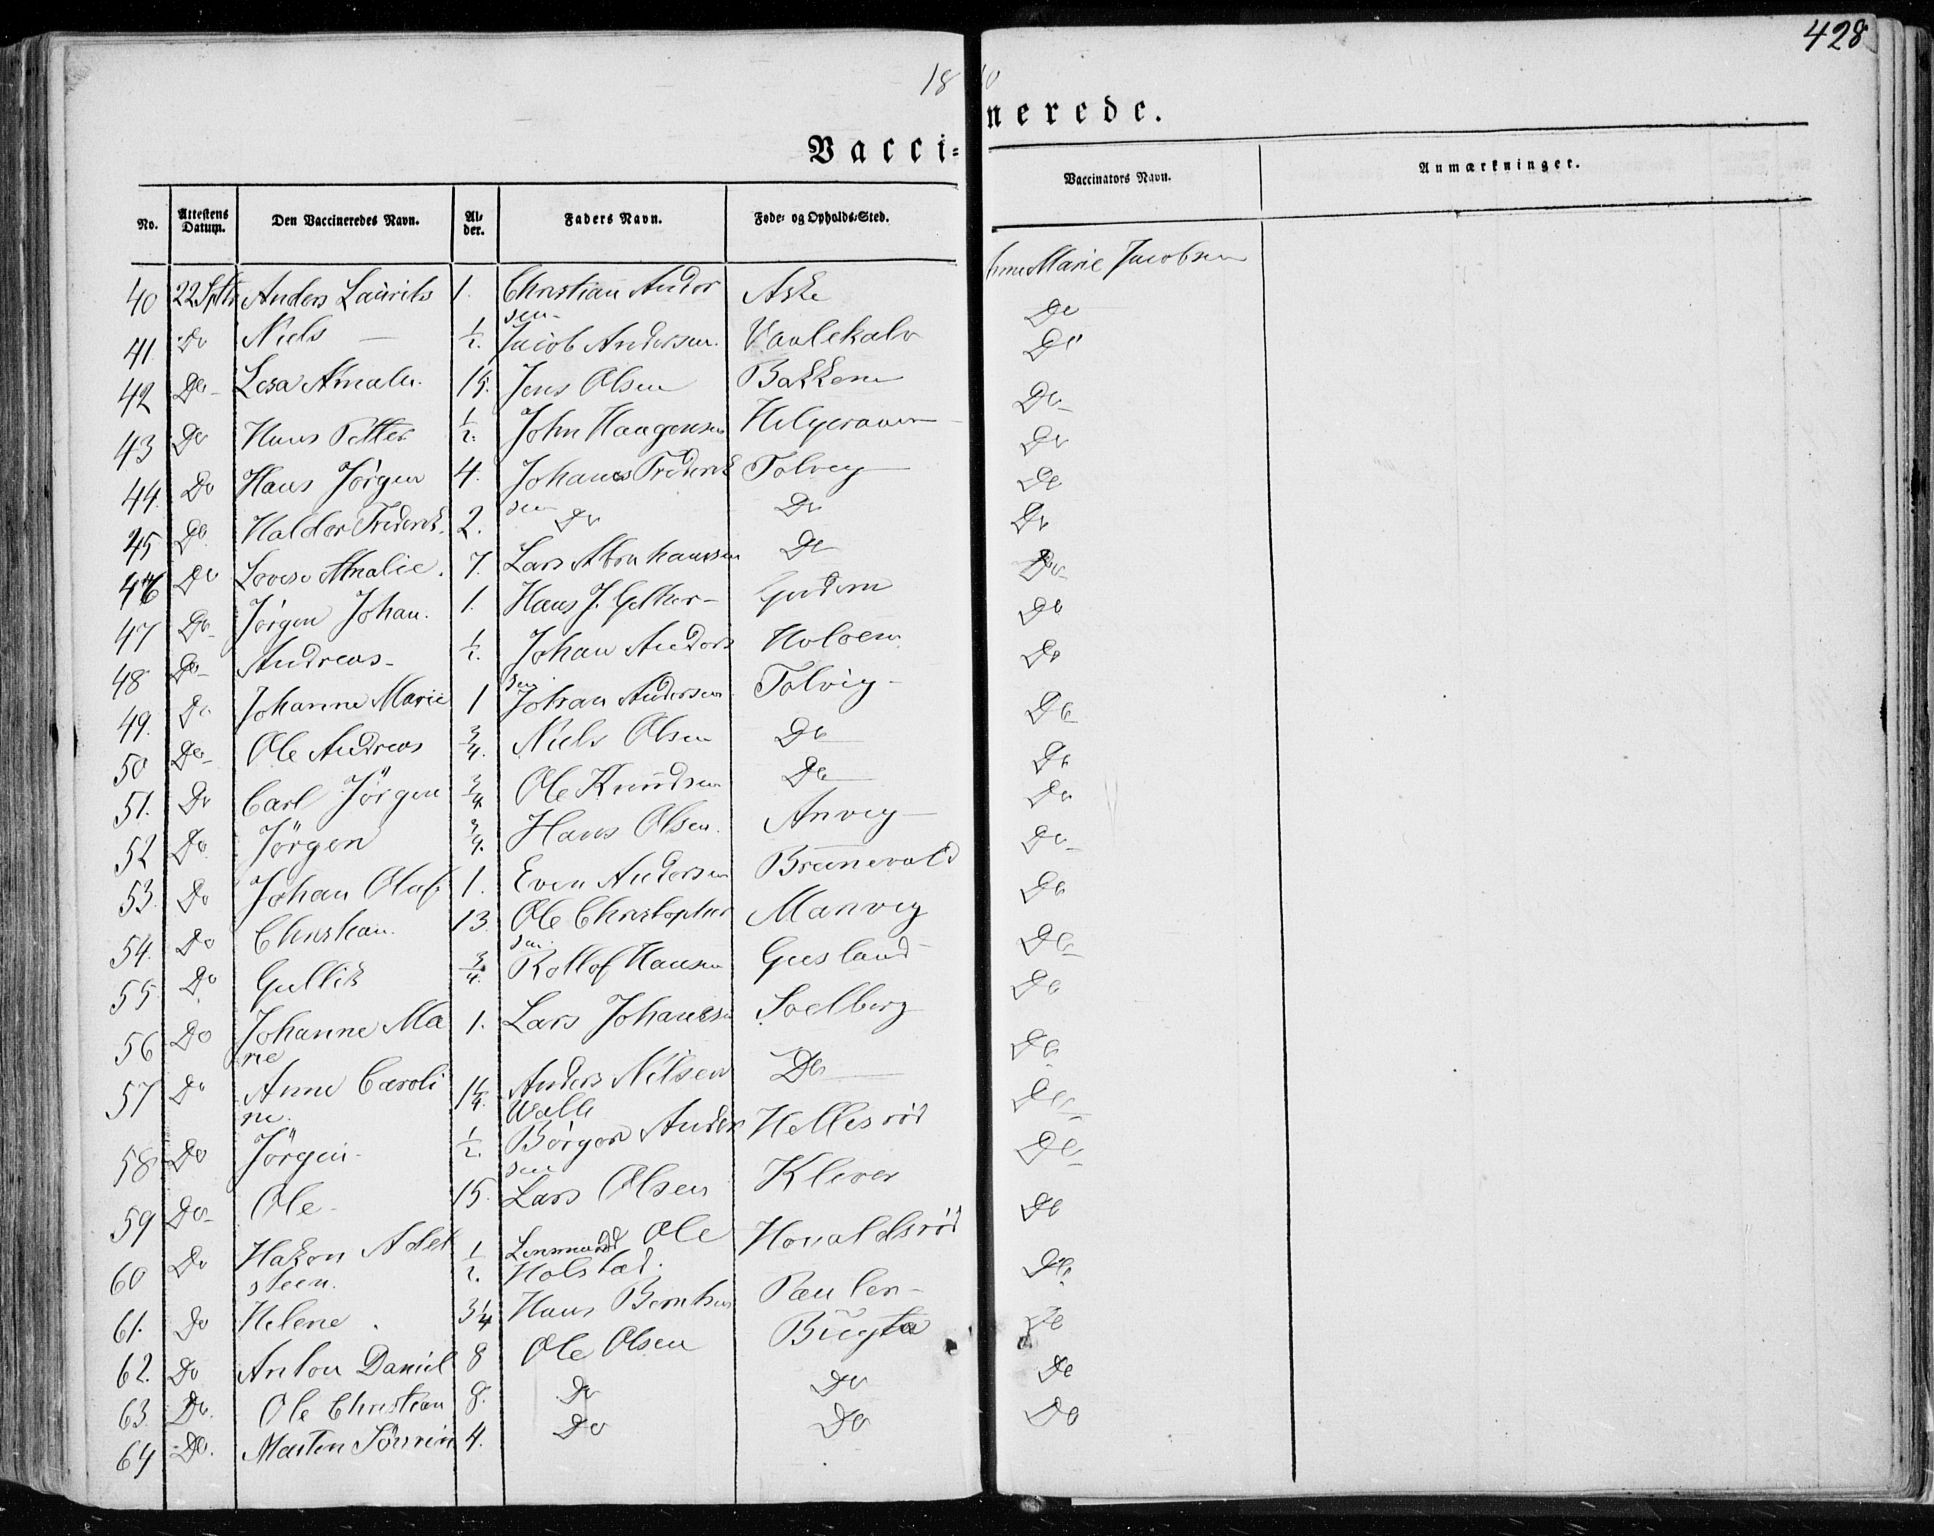 428
18
Vacci= nerede.
No. Attestens Datum. Den Vaccineredes Navn. Al- der. Faders Navn. Føde- og Opholds-Sted. Vaccinators Navn. Anmærkninger.
40 22 Sptbr Anders Laurits 1. Christian Ander Aske Marie Jacobsen
sen-
41. Do Niels — ½. Jacob Andersen. Vaulekalv Do
42 Do- Amalie. 15. Jens Olsen Bakken Do
43 Do Hans Petter ½. John Haagensen Helgeraaen Do-
44 Do Hans Jørgen 4. Johanes Frederik Tolvig Do
sen
45 Do Haldor Frederik. 2. Do Do Do
46 Do Lovise Amalie. 7. Lars Abrahamsen Do Do
47 Do- Jørgen Johan. 1. Hans J. Do-
48 Do- Andreas- ½. Johan Anders Do
sen
49. Do Johanne Marie 1 Johan Andersen Tolvig- Do
50 Do- Ole Andreas ¾. Niels Olsen Do Do
51. Do Carl Jörgen ¾. Ole Knudsen Do Do
52 Do Jörgen ¾. Hans Olsen. Anvig Do
53. Do Johan Oluf 1. Even Andersen Brunevald Do-
54. Do Christian. 13. Ole Christopher Manvig Do
sen.
55 Do Gullik ¾. Rollof Hansen Gusland Do-
56 Do Johanne Ma 1. Lars Johanesen Soelberg Do
rie
57 Do Anne Caroli 1¼. Anders Nilsen Do Do
ne. Walle
58 Do Jörgen- ½. Börger Ander Hellesrød Do-
sen
59 Do- Ole- 15. Lars Olsen Klever Do-
60 Do Hakon Adel ½. Lensmand Ole Do
steen. Holstad.
61. Do Helene. 3¼ Hans Berntsen Paulen- Do
62. Do Anton Daniel 8 Ole Olsen Bugta Do
63 Do. Ole Christian 8. Do Do Do
64 Do. 4. Do Do Do